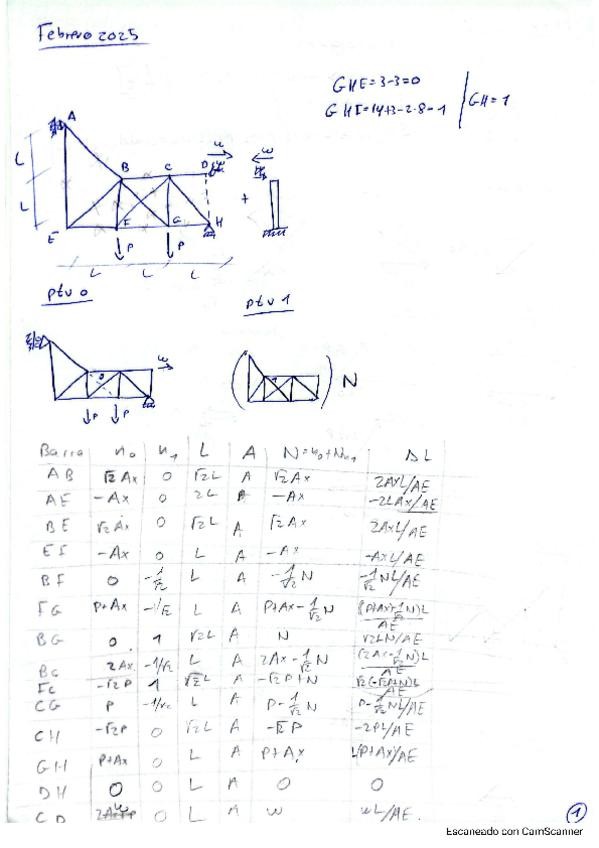 Febrero 2025
GHE=3-3=0
GHI=14+3-2·8=1
GH=1
A
L
B
C
D
u
w
L
+
E
F
G
H
P
P
L
L
L
ptv 0
ptv 1
w
P
P
N
Barra n₀ n₁ L A N=n₀+Nn₁ ΔL
AB √2 Ax 0 √2L A √2 Ax 2AxL/AE
AE -Ax 0 2L A -Ax -2LAx/AE
BE √2 Ax 0 √2L A √2 Ax 2AxL/AE
EF -Ax 0 L A -Ax -AxL/AE
BF 0 -1/√2 L A -1/√2 N -1/√2 NL/AE
FG P+Ax -1/√2 L A P+Ax-1/√2 N (P+Ax-1/√2 N)L/AE
BG 0 1 √2L A N √2LN/AE
BC 2Ax -1/√2 L A 2Ax-1/√2 N (2Ax-1/√2 N)L/AE
FC -√2P 1 √2L A -√2P+N √2(-√2P+N)L/AE
CG P -1/√2 L A P-1/√2 N P-1/√2 NL/AE
CH -√2P 0 √2L A -√2P -2PL/AE
GH P+Ax 0 L A P+Ax L(P+Ax)/AE
DH 0 0 L A 0 0
CD w 0 L A w wL/AE.
1
Escaneado con CamScanner